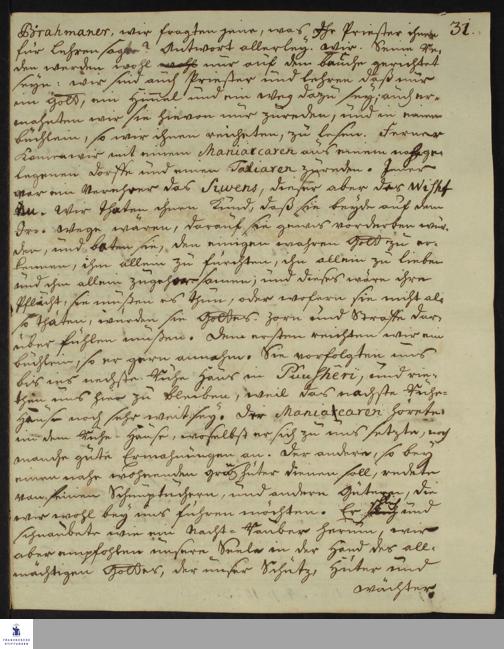 31.
Brahmaner, wir fragten jene, was Ihr Priester ihnen
für Lehren sagte? Antwort allerley. Wir. Seine Re-
den werden wohl nur auf den bauch gerichtet
seyn. Wir sind auch Priester und lehren daß nur
ein Gott, ein Himel und ein Weg dazu sey; auch er-
mahnten wir sie hievon nur zureden, und in einem
büchlein, so wir ihnen reicheten, zu lesen. Ferner
kamen wir mit einem Maniacaren aus einem nahge-
legenen dorffe und einem Tadiaren zureden. Jener
war ein Verehrer des Siwens, dieser aber des Wischt
nu. Wir thaten ihnen kund, daß sie beyde auf dem
Irr-Wege wären, darauf sie gewis verderben wür-
den, und baten sie, den einigen wahren Gott zu er-
kennen, ihn allein zu fürchten, ihn allein zu lieben
und ihm allein zugehorsamen; und dieses wäre ihre
Pflicht, sie müsten es thun, oder wofern sie nicht al-
so thäten, würden sie Gottes Zorn und Straffe dar-
über fühlen müßen. Dem ersten reichten wir ein
büchlein, so er gern annahm. Sie verfolgten uns
bis ins nechste Ruhe Haus in und rie-
then uns hier zu bleiben, weil das nachste Ruhe-
Hause noch sehr weit sey. Der Maniacaren horete
in dem Ruhe-Hause, woselbst er sich zu uns setzte, noch
manche gute Ermahnungen an. Der andere, so bey
einem nahe wohnenden hüter dienen soll, redete
von seinen Schnupftüchern, und andern Gütern, die
wir wohl bey uns führen mochten. Er und
schnaubete wie ein Nacht-Rauber herum, wir
aber empfohlen unsere Seele in der Hand des all-
mächtigen Gottes, der unser Schutz, Hüter und
wächter
FRANCKESCHE
STIFTUNGEN